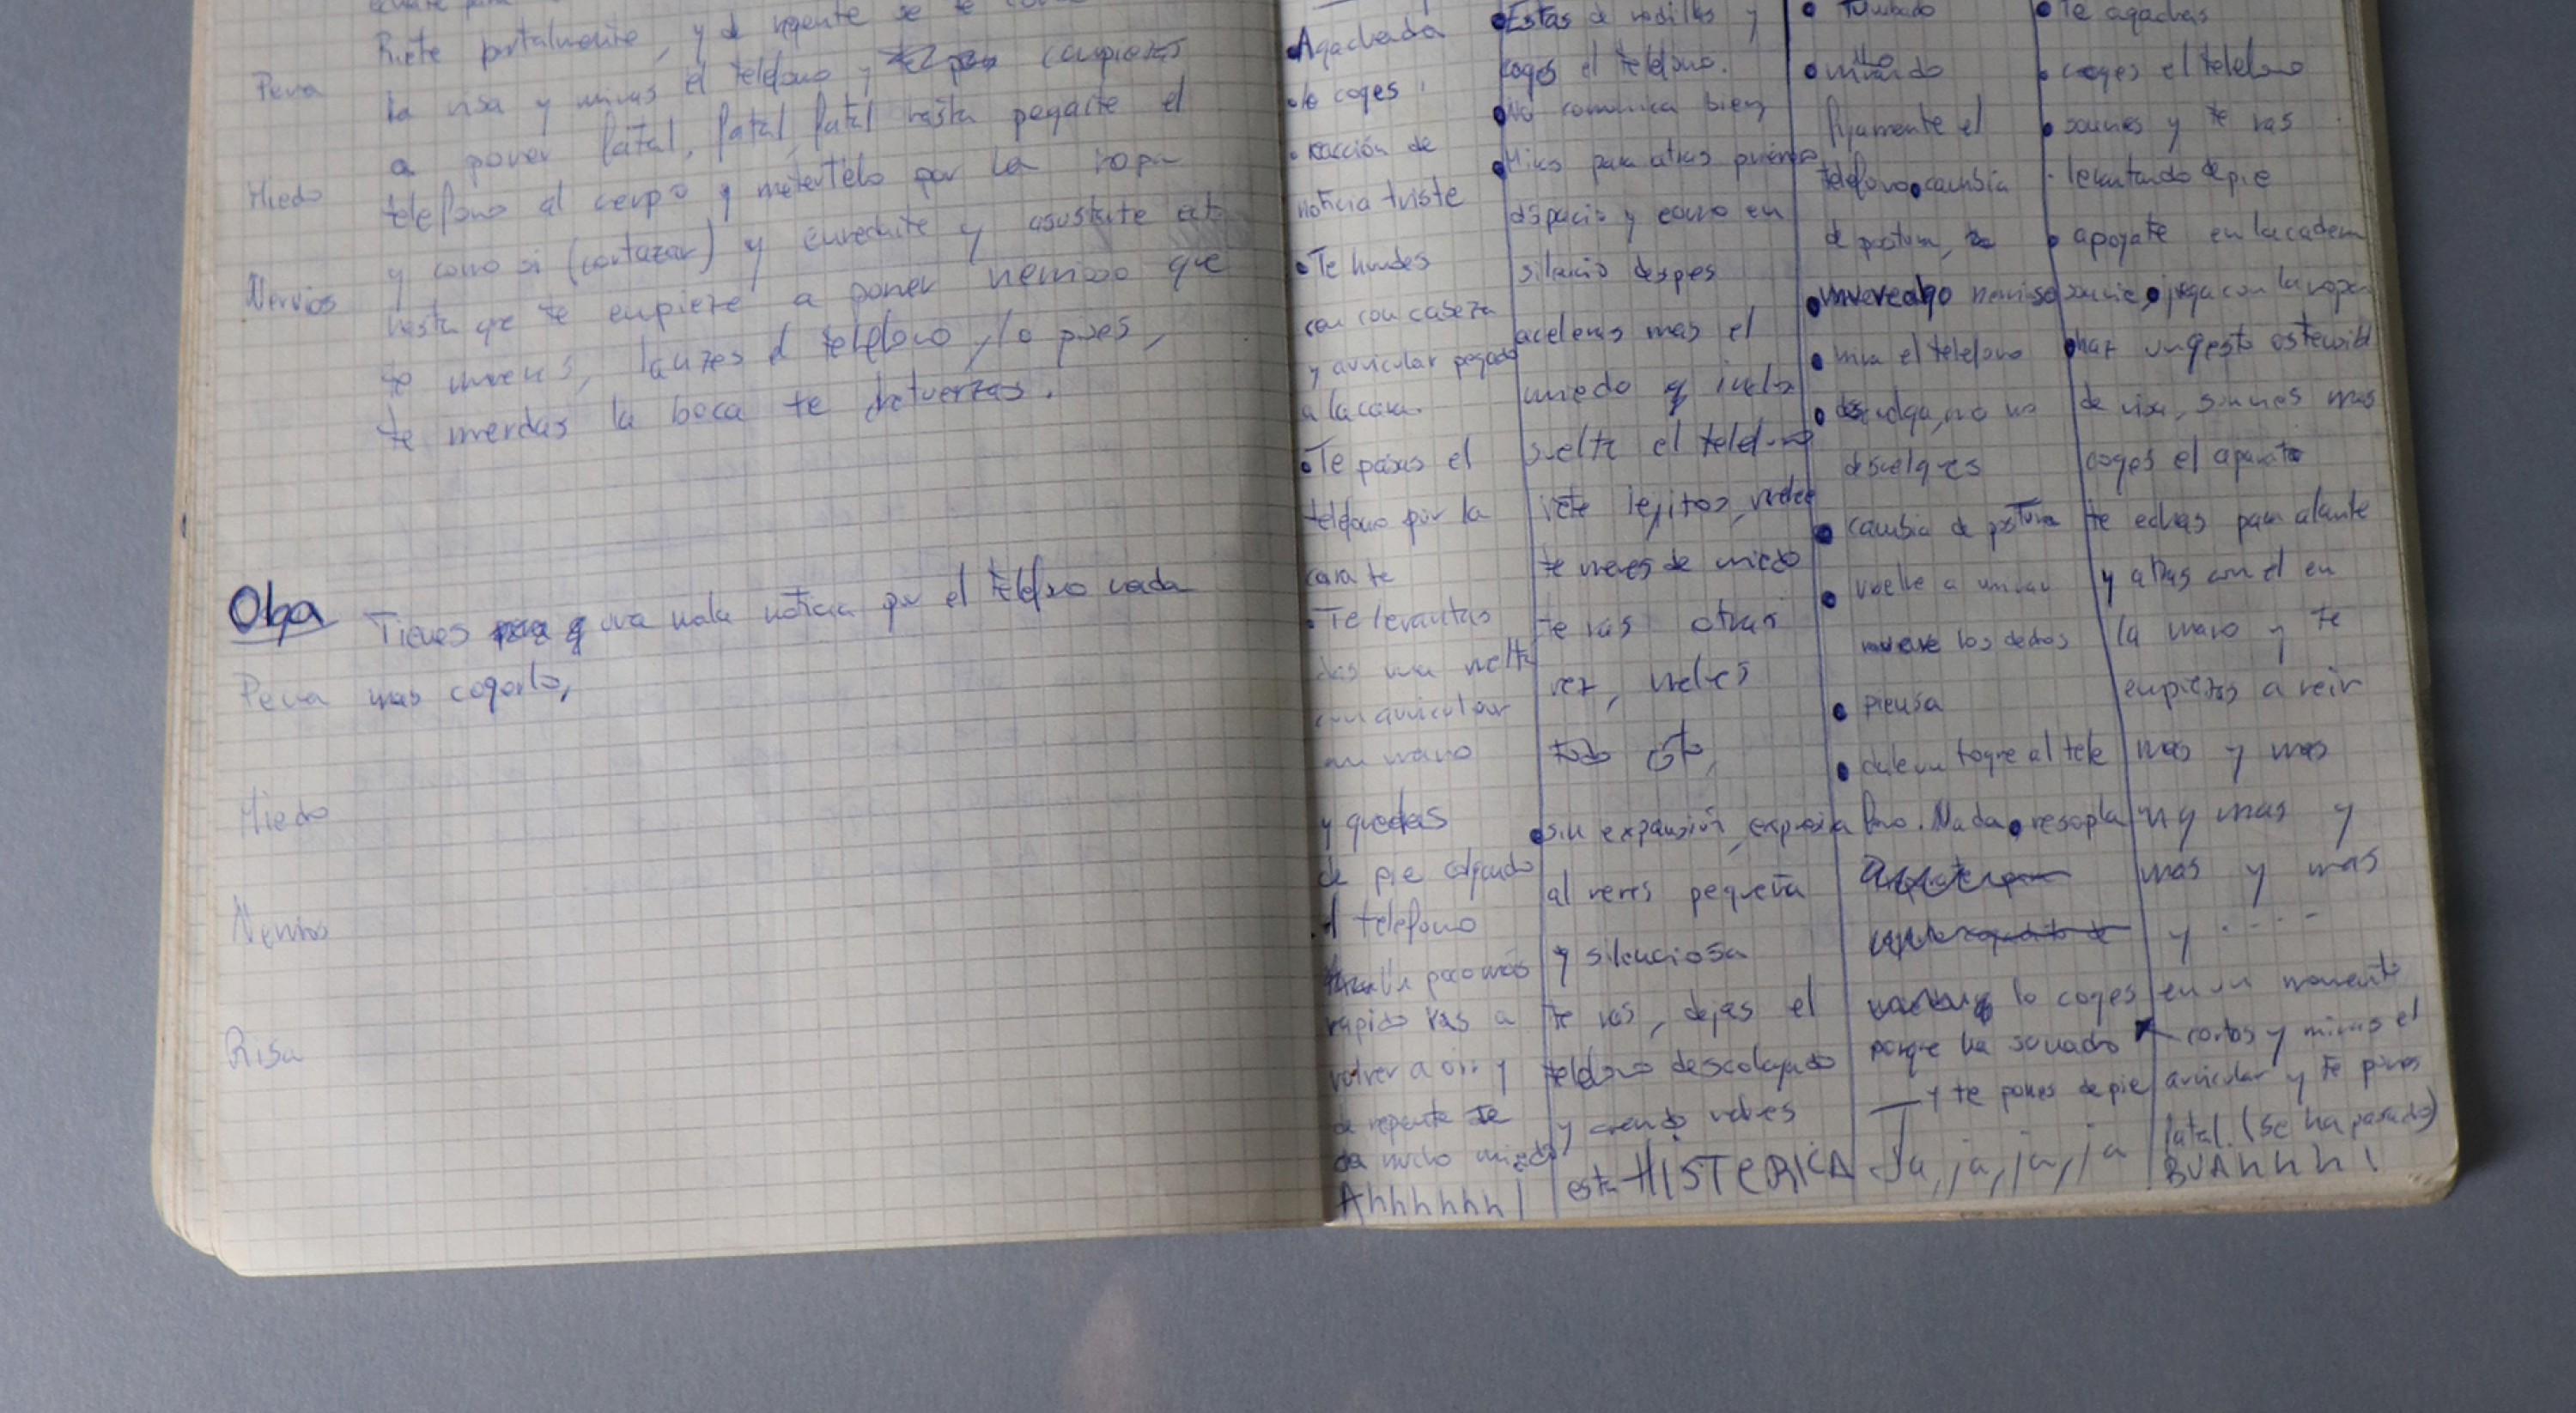 Riete brutalmente, y de repente se te
Pena
la risa y miras el telefono y empiezas
a poner fatal, fatal, fatal hasta pegarte el
Miedo
telefono al cerpo y metertelo por la ropa
y como si (cortazar) y enredarte y asustarte
Nervios
hasta que te empieze a poner nervioso que
te mueves, lanzes el telefono, lo pises,
te muerdas la boca te retuerzas.
Olga
Tienes una mala noticia por el telefono nada
Pena
mas cogerlo,
Miedo
Nervios
Risa
• Agachada
• lo coges,
• reacción de
noticia triste
• Te hundes
con cabeza
y auricular pegado
a la cara.
• Te pasas el
telefono por la
cara te
• Te levantas
das una vuelta
con auricular
en mano
y quedas
de pie colgando
el telefono
Un poco más
rapido vas a
volver a oir y
de repente te
da mucho miedo
Ahhhhhh!
• Estas de rodillas y
coges el telefono.
• No comunica bien
• Miras para atras primero
despacio y como en
silencio despes
aceleras mas el
miedo y
suelta el telefono
vete lejitos, vuelve
te mueves de miedo
te vas otras
vez, vuelves
todo esto,
• sin expansión, expresia
al reves pequeña
y silenciosa
te vas, dejas el
telefono descolgado
y cuando vuelves
esta HISTERICA
• Tumbado
• mirando
fijamente el
telefono • cambia
de postura,
• mueve algo nervioso
• mira el telefono
• descuelga, no no
descuelgues
• cambia de postura
• vuelve a mirar
mueve los dedos
• piensa
• dale un toque al tele
fono. Nada • resopla
lo coges
porque ha sonado
y te pones de pie
Ja, ja, ja, ja
• Te agachas
• coges el telefono
• sonries y te vas
levantando de pie
• apoyate en la cadera
sonrie • juega con la ropa
• haz un gesto ostensibl
de risa, sonries mas
coges el aparato
te echas para alante
y atras con el en
la mano y te
empiezas a reir
mas y mas
y mas y
mas y mas
y . . . .
en un momento
cortas y miras el
auricular y te pones
fatal. (se ha pasado)
BUAhhh!